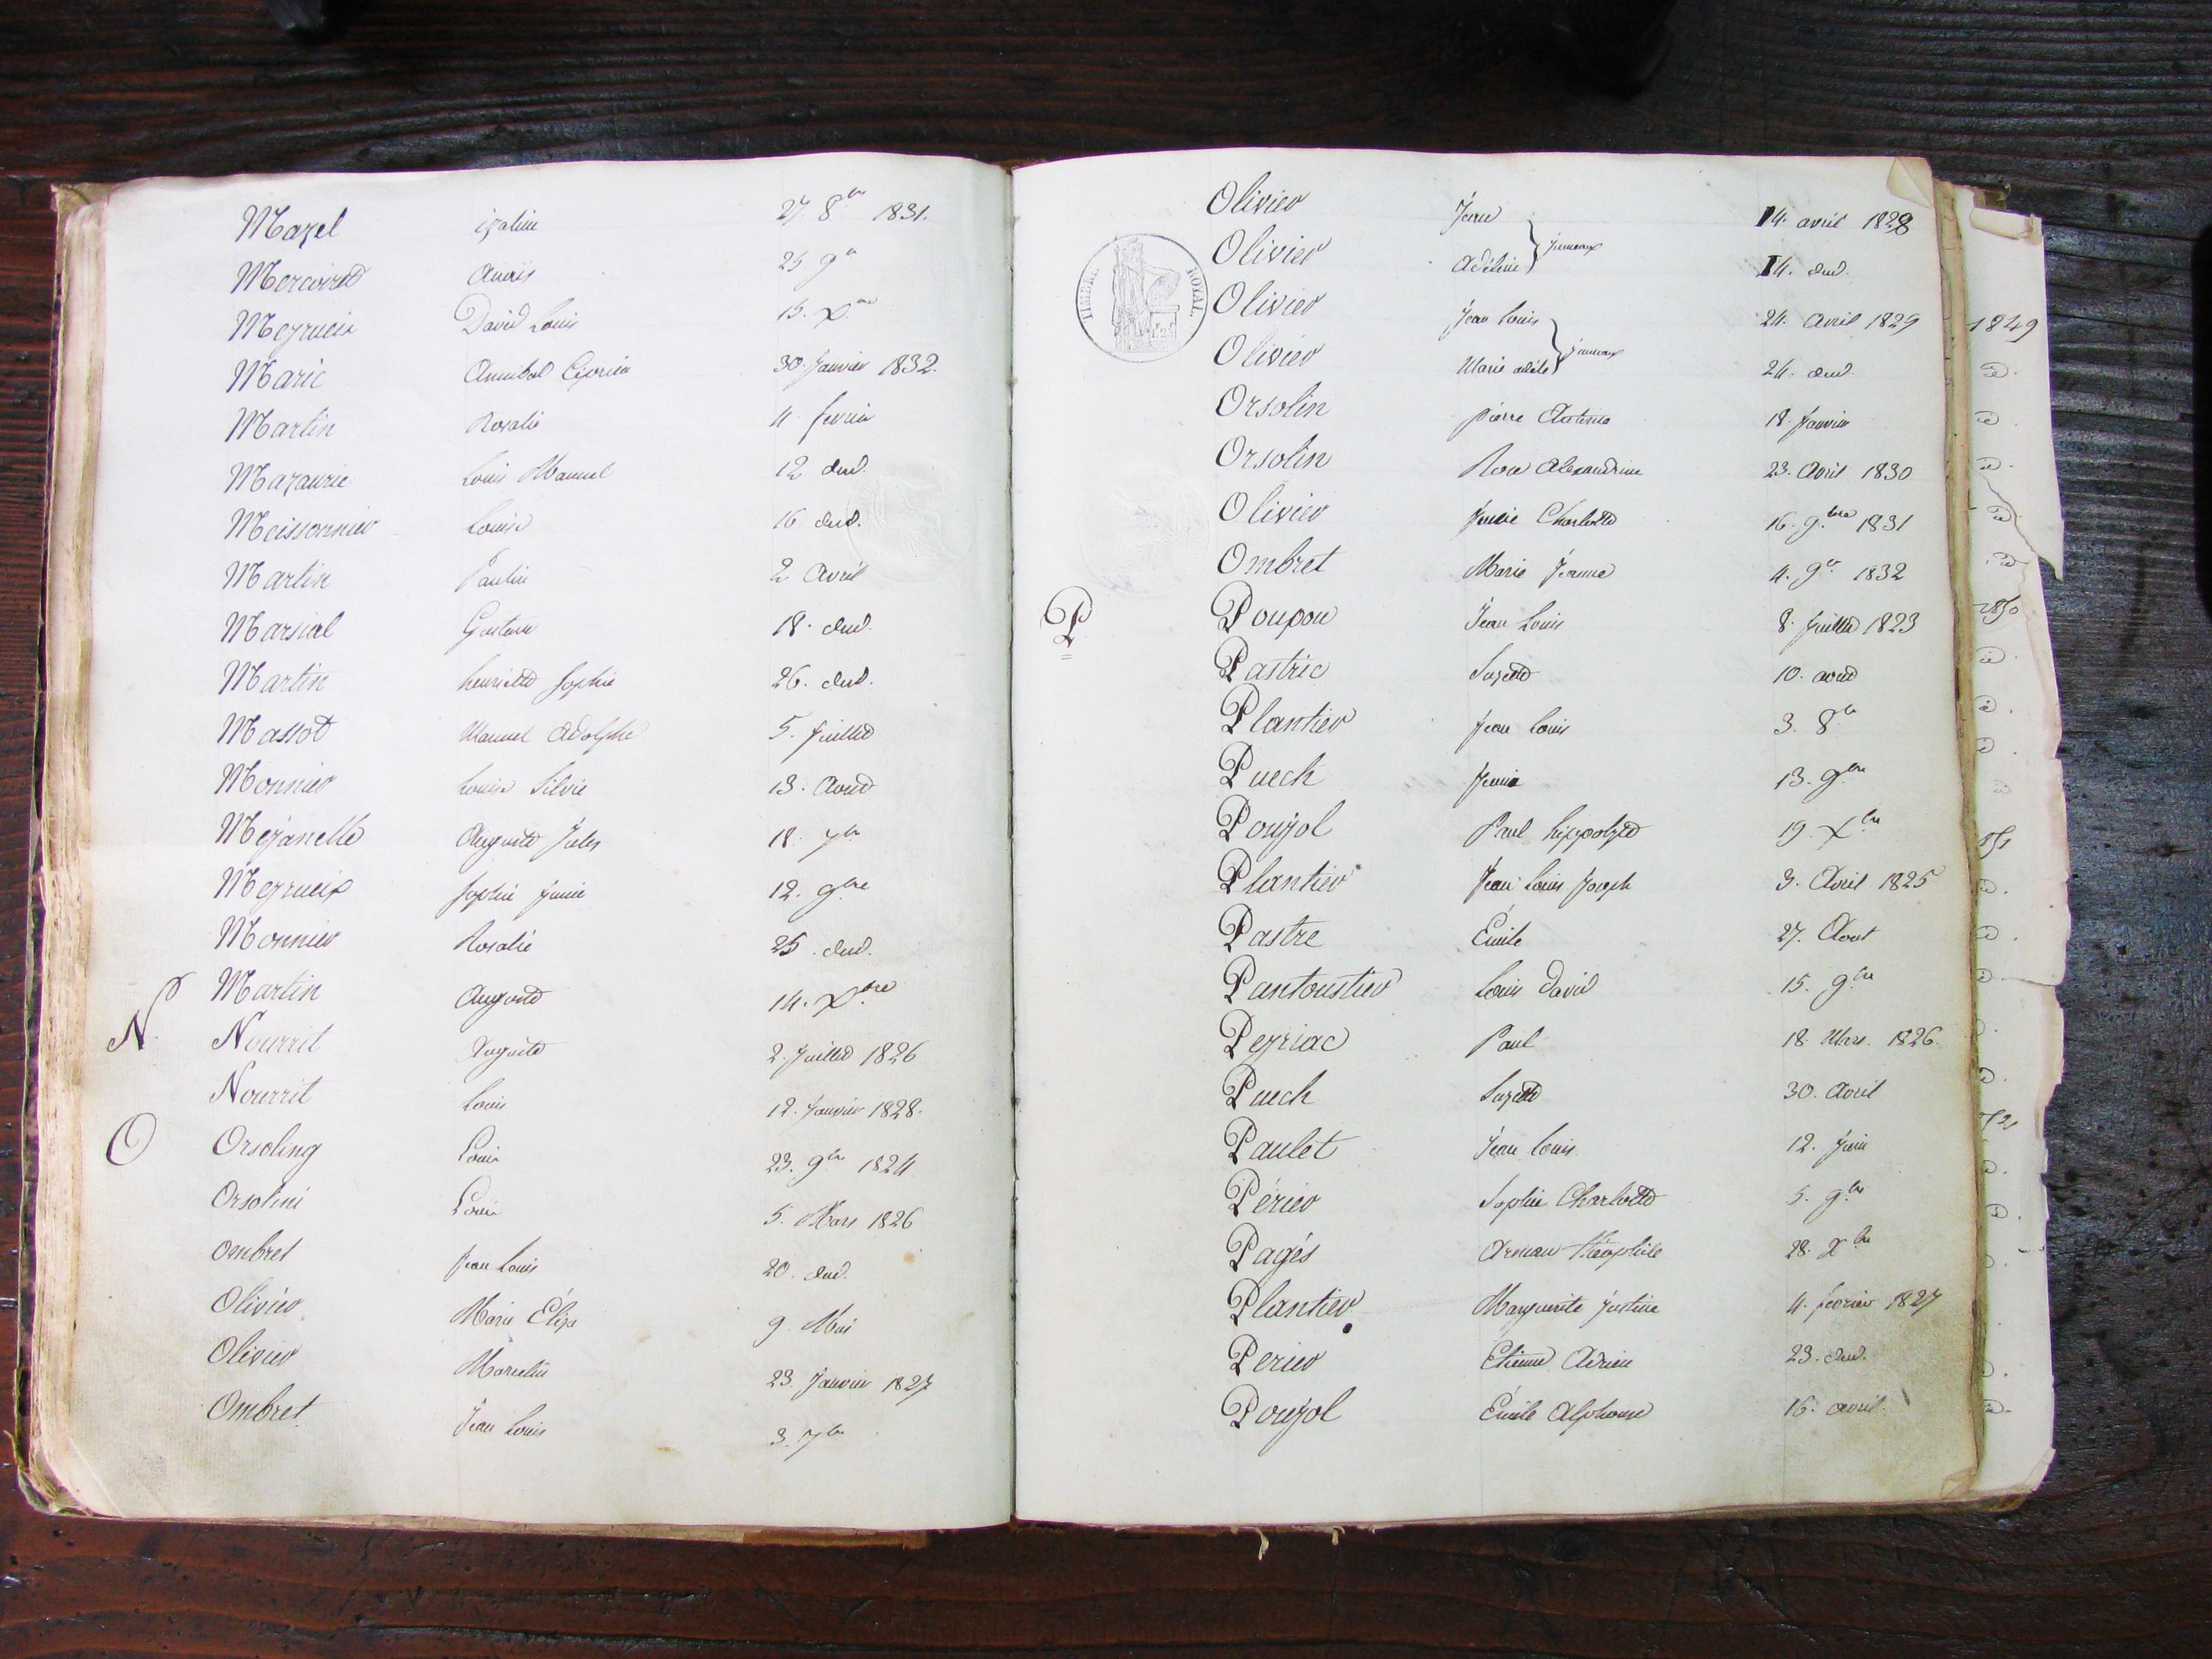 Mazel izaline 27. 8bre 1831.
Mercoiret Anaïs 25 9bre
Meyrueix David Louis 15. Xbre
Marie Annibal Ciprien 30. Janvier 1832.
Martin Rosalie 4 fevrier
Mazauric Louis Manuel 12 dud.
Meissonnier Louise 16 dud.
Martin Paulin 2 Avril
Marsial Gustave 18. dud.
Martin henriette Sophie 26. dud.
Massot Manuel Adolphe 5. Juillet
Monnier Louise Silvie 13. Aout
Mejanelle Auguste Jules 18. 7bre
Meyrueix Sophie Junie 12. 9bre
Monnier Rosalie 25. dud.
Martin Auguste 14. Xbre
N. Nourrit Auguste 2. Juillet 1826
Nourrit Louis 12. Janvier 1828.
O Orsoling Louis 23. 9bre 1824
Orsolini Louis 5. Mars 1826
Ombret Jean Louis 20. dud.
Olivier Marie Éliza 9. Mai
Olivier Marcelin 23. Janvier 1827
Ombret Jean Louis 3. 7bre
TIMBRE ROYAL.
Olivier Jean 14. avril 1828
Olivier Adeline } jumeaux 14. dud.
Olivier Jean Louis 24. Avril 1829
Olivier Marie adèle } jumeaux 24. dud.
Orsolin pierre Antoine 18 Janvier
Orsolin Rose Alexandrine 23. Avril 1830
Olivier Junie Charlotte 16. 9bre 1831
Ombret Marie Jeanne 4. 9bre 1832
P Poupon Jean Louis 8. Juillet 1823
Pastric Suzette 10. aout
Plantier Jean Louis 3. 8bre
Puech Junie 13. 9bre
Poujol Paul hippolyte 19. Xbre
Plantier Jean Louis Joseph 3. Avril 1825
Pastre Émile 27. Aout
Pantoustier Louis David 15. 9bre
Peyriac Paul 18 Mars. 1826.
Puech Suzette 30. Avril
Paulet Jean Louis 12. Juin
Périer Sophie Charlotte 5. 9bre
Pagés Arman théophile 28. Xbre
Plantier Marguerite Justine 4. fevrier 1827
Perier Etienne Adrien 23. dud.
Poujol Émile Alphonse 16. avril.
1849